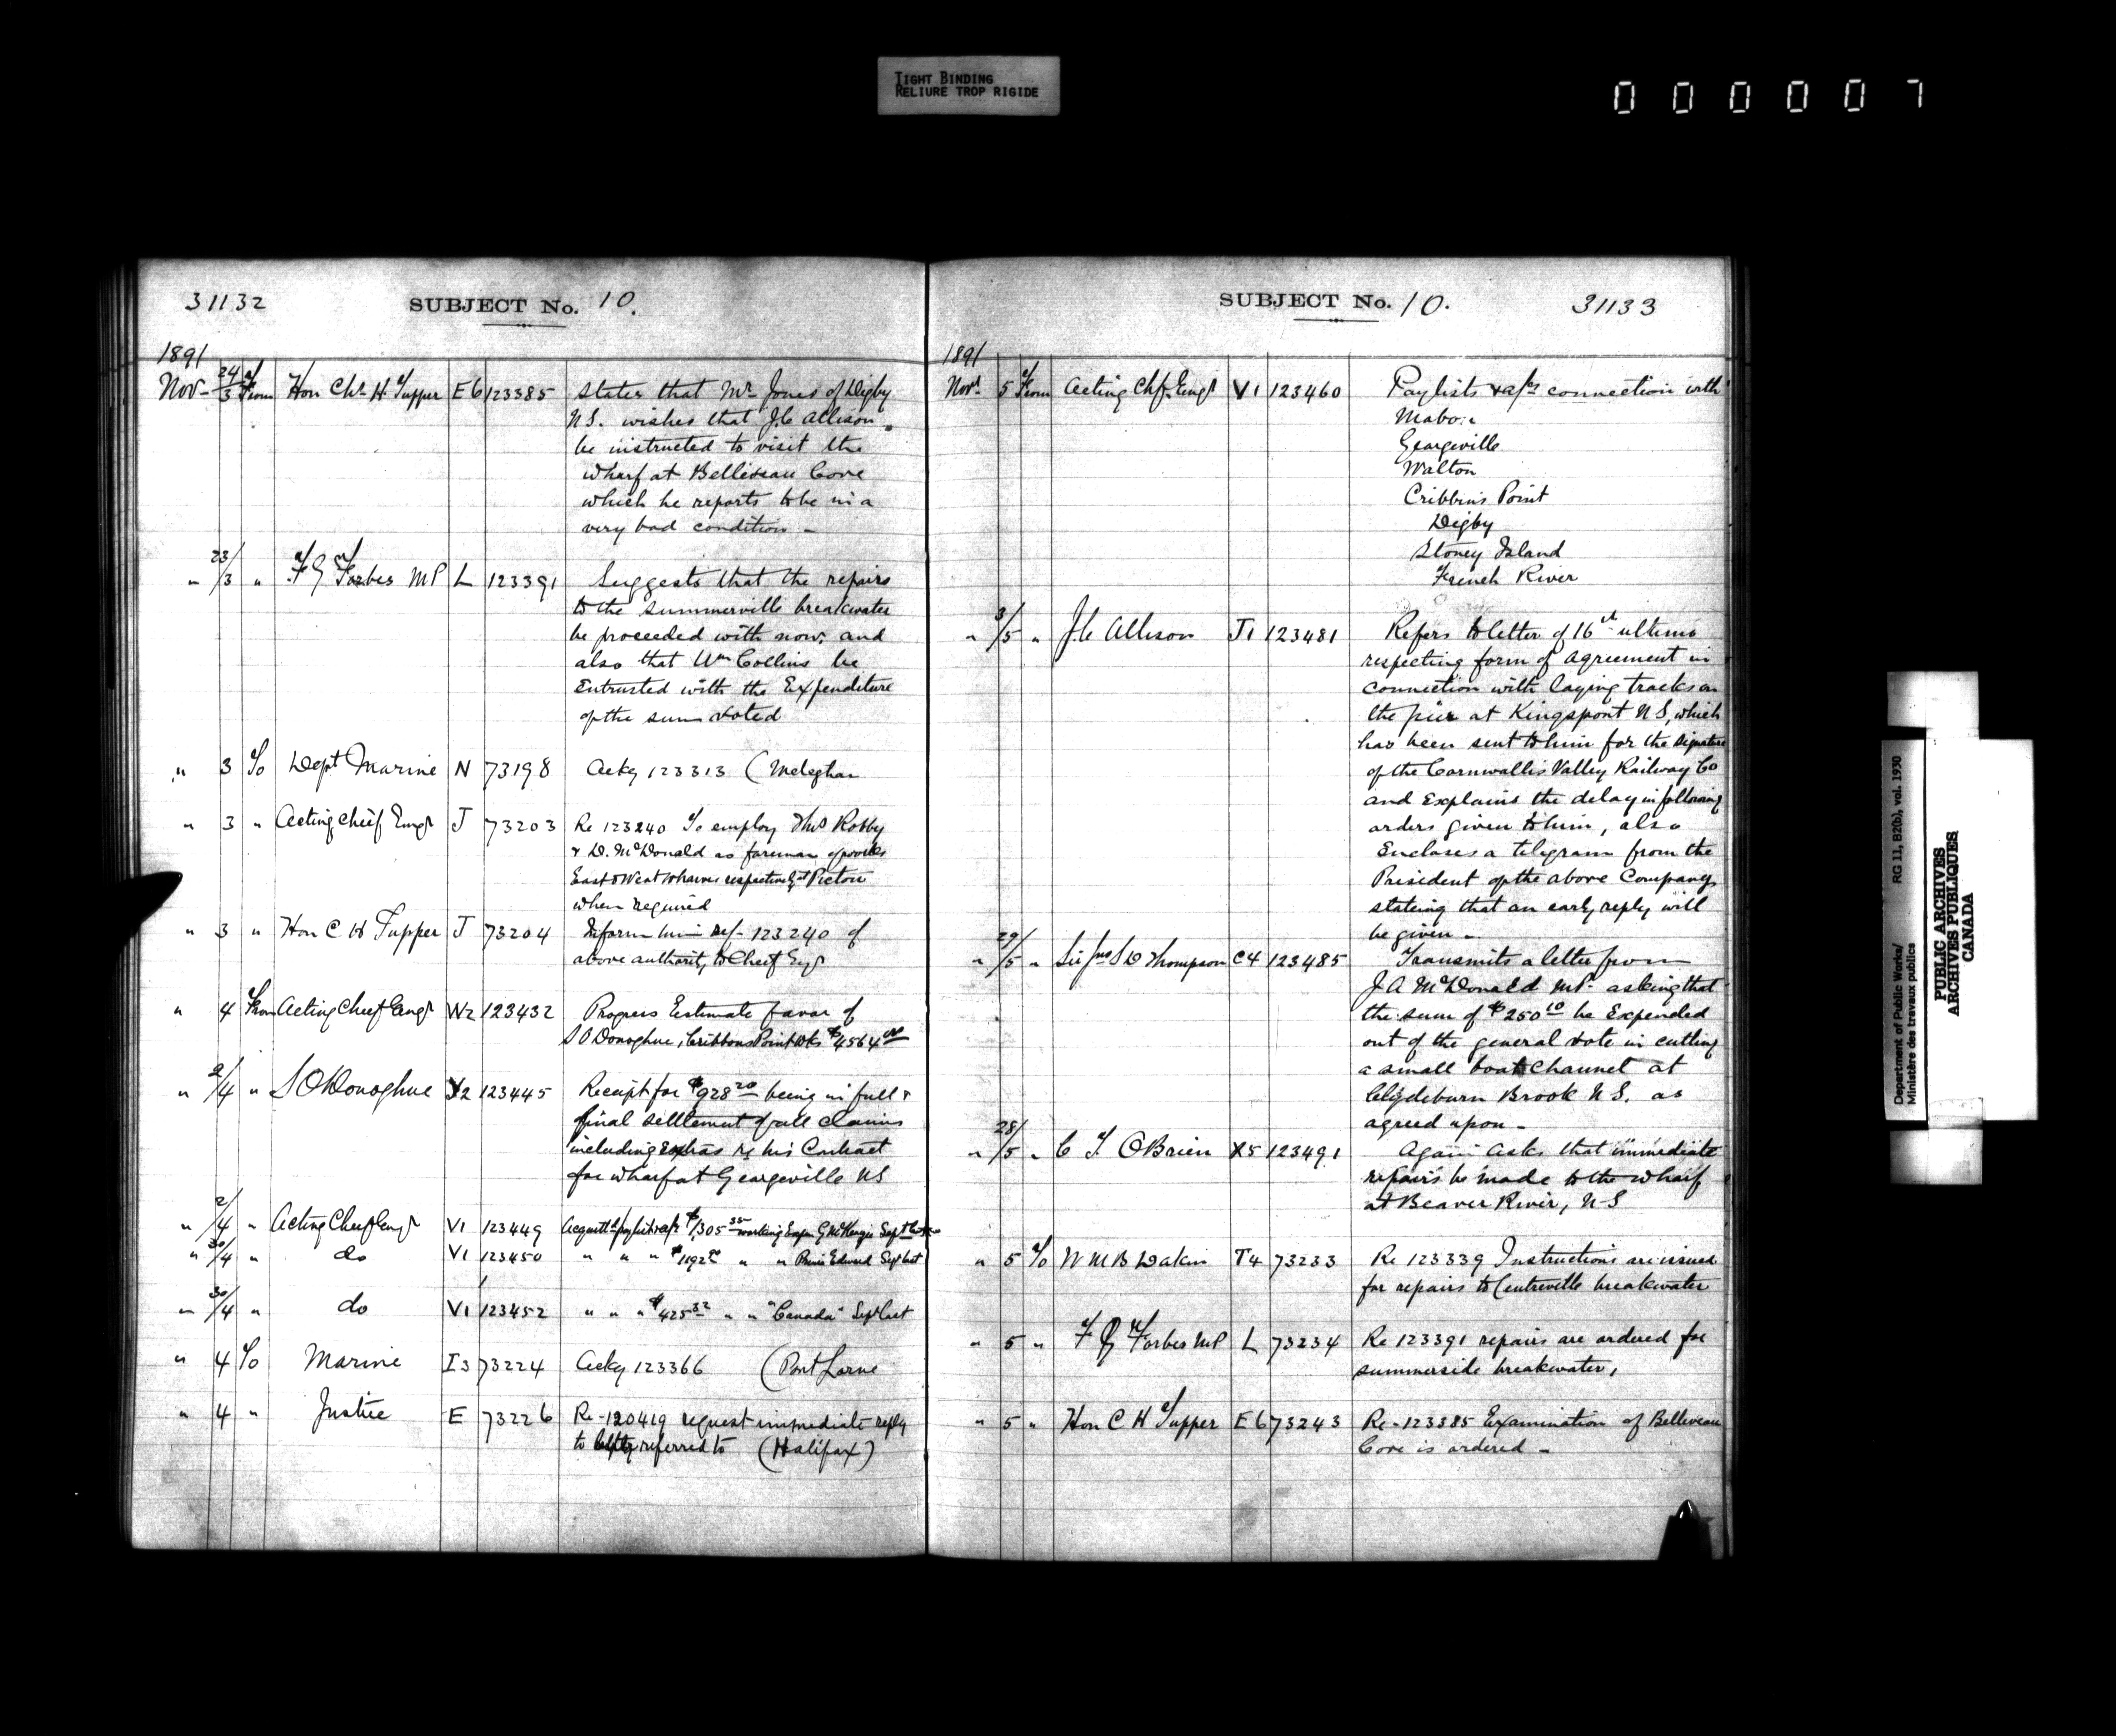 TIGHT BINDING
RELIURE TROP RIGIDE
000007
31132 SUBJECT No. 10.
1891
Nov 24/3 From Hon Chs H. Tupper E6 123385 States that Mr Jones of Digby
N.S. wishes that J.C. Allison
be instructed to visit the
wharf at Belliveau Cove
which he reports to be in a
very bad condition -
" 23/3 " F G Forbes MP L 123391 Suggests that the repairs
to the Summerville breakwater
be proceeded with now, and
also that Wm Collins be
Entrusted with the Expenditure
of the sum voted
" 3 To Dept Marine N 73198 Ackg 123313 (Meteghan
" 3 " Acting Chief Engr J 73203 Re 123240 To employ Thos Robby
& D. McDonald as foreman of works
East & West Wharves respectively at Pictou
when required
" 3 " Hon C H Tupper J 73204 Inform him ref- 123240 of
above authority to Cheif Engr
" 4 From Acting Cheif Engr W2 123432 Progress Estimate favor of
S O'Donoghue, Cribbons Point Wks $4564
" 2/4 " S O'Donoghue 123445 Receipt for $928 20 being in full &
final settlement of all claims
including Extras re his Contract
for wharf at Georgeville NS
" 2/4 " Acting Cheif Engr V1 123449 $1305 35 working Expn G McKenzie Sept last
" 30/4 " do V1 123450 " " " $1192 " " Prince Edward Sept last
" 30/4 " do V1 123452 " " " $425 32 " " "Canada" Sept last
" 4 To Marine I3 73224 Ackg 123366 (Port Lorne
" 4 " Justice E 73226 Re-120419 request immediate reply
to referred to (Halifax)
SUBJECT No. 10. 31133
1891
Novr 5 From Acting Chf. Engr V1 123460 Paylists & a/cs connection with
Mabou
Georgeville
Walton
Cribbins Point
Digby
Stoney Island
French River
" 3/5 " J.C. Allison J1 123481 Refers to letter of 16th ultimo
respecting form of Agreement in
connection with laying tracks on
the pier at Kingsport N S, which
has been sent to him for the signature
of the Cornwallis Valley Railway Co
and Explains the delay in following
orders given to him, also
Encloses a telegram from the
President of the above Company
stating that an early reply will
be given -
" 29/5 " Sir Jno S D Thompson C4 123485 Transmits a letter from
J A McDonald MP. asking that
the sum of $250 be Expended
out of the general vote in cutting
a small boat Channel at
Clydeburn Brook N S. as
agreed upon -
" 28/5 " C T. O'Brien X5 123491 Again asks that immediate
repairs be made to the wharf
at Beaver River, N-S
" 5 To W M B Dakin T4 73233 Re 123339 Instructions are issued
for repairs to Centreville breakwater
" 5 " F G Forbes MP L 73234 Re 123391 repairs are ordered for
summerside breakwater,
" 5 " Hon C H Tupper E6 73243 Re-123385 Examination of Belliveau
Cove is ordered -
Department of Public Works/ RG 11, B2(b), vol. 1930
Ministère des travaux publics
PUBLIC ARCHIVES
ARCHIVES PUBLIQUES
CANADA